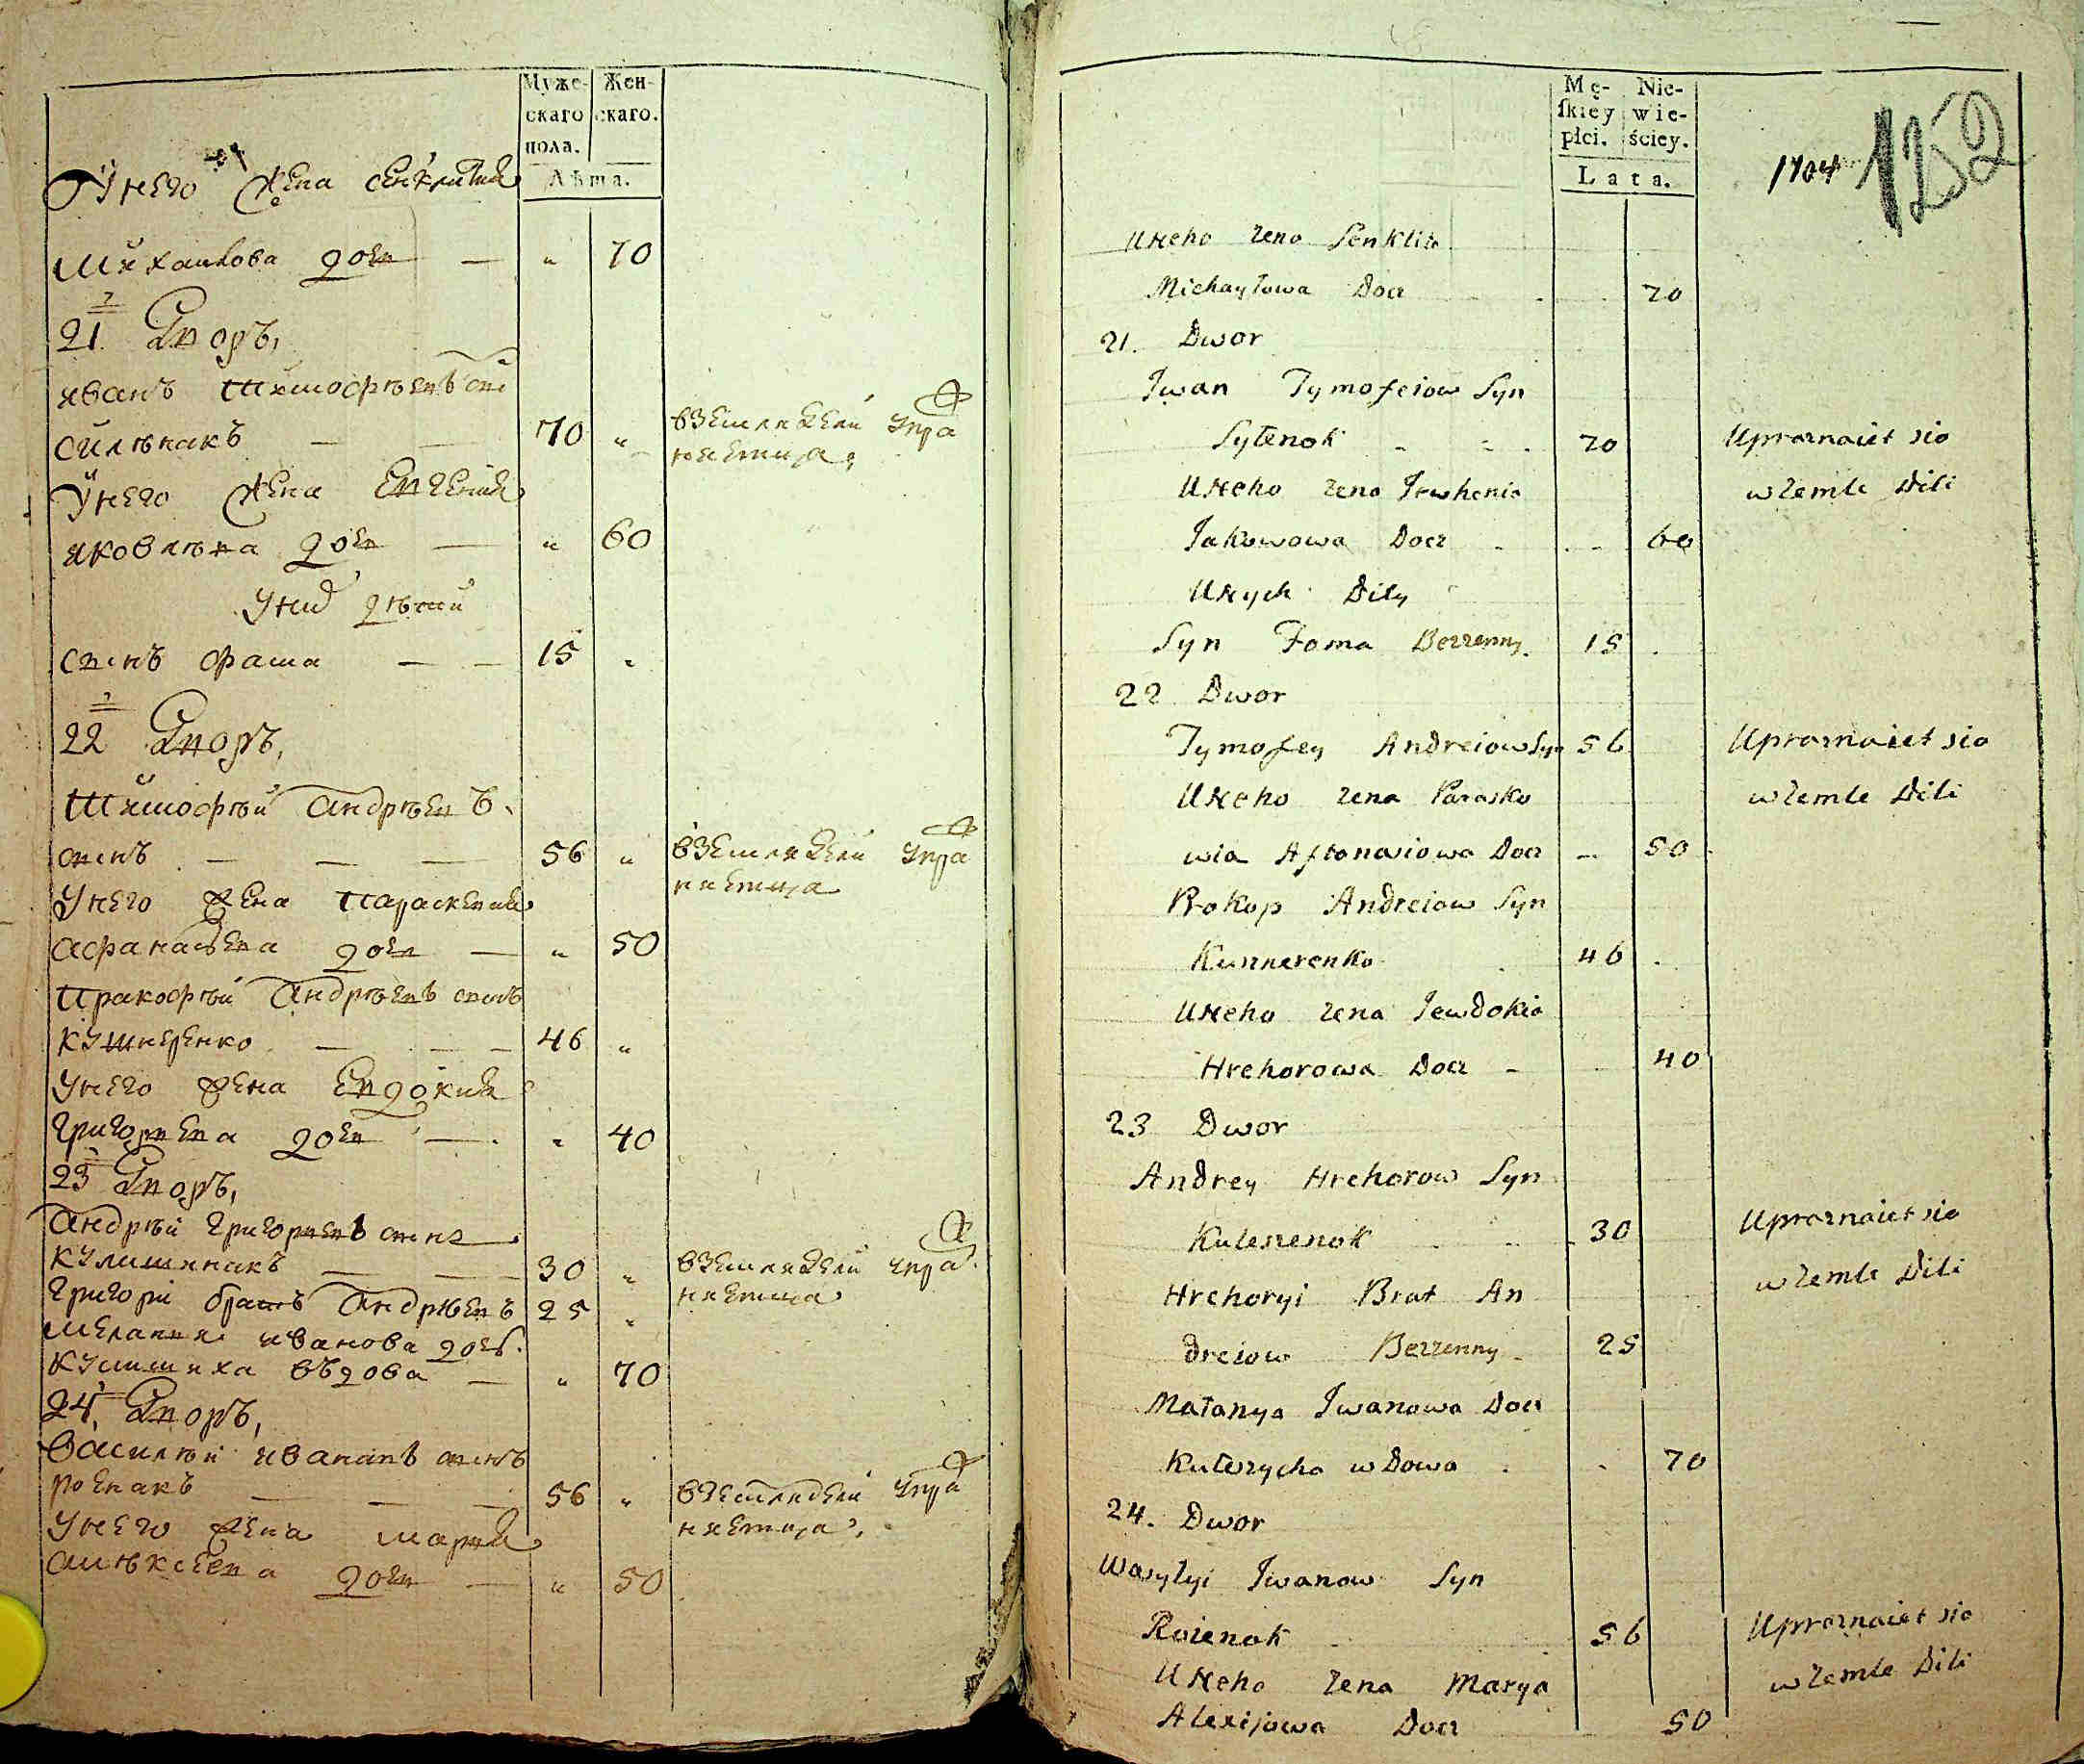 Муже-
скаго
пола.
Жен-
скаго.
Лѣта.
Унего жена сенклития
михаилова дочь — „ 70
21. Дворъ,
иванъ тимофѣевъ сн
силѣнакъ — — 70 „ вземледели упра
няетца,
Унего жена Евгения
яковлѣва дочь — „ 60
Униӑ дѣти
синъ фама — — 15 „
22 Дворъ,
тимофѣй андрѣевъ
синъ — — — 56 „ вземледели упра
няетца
Унего жена параскевия
афанасьева дочь — „ 50
пракофѣй андрѣевъ синъ
кушнеренко — — — 46 „
Унего жена Евдокия
григорьева дочь — „ 40
23 Дворъ,
андрѣй григориевъ синъ
кулишинакъ — — 30 „ вземледели упра
Григори братъ андрѣевъ 25 „ няетца
мелания иванова дочь
кулишиха въдова — „ 70
24, Дворъ,
василѣй ивановъ синъ
роенакъ — — — 56 „ вземледели упра
Унего жена мария няетца,
алѣксеева дочь — „ 50
Mę-
ſkiey
płci.
Nie-
wie-
ściey.
Lata.
152
Uneho zena Senklita
Michayłowa Docz 70
21. Dwor
Iwan Tymofeiow Syn
Sylenok 70 Uprarnaiet sia
Uneho zena Jewhenia w Zemle Dili
Jakowowa Docz 60
Unych Dity
Syn Foma Bezzenny 15
22 Dwor
Tymofey Andreiow Syn 56 Uprarnaiet sia
Uneho zena Parasko w Zemle Dili
wia Aftanasiowa Docz 50
Prokop Andreiow Syn
Kunnerenko 46
Uneho zena Jewdokia
Hrehorowa Docz 40
23 Dwor
Andrey Hrehorow Syn
Kuleszenok 30 Uprarnaiet sia
Hrehoryi Brat An w Zemle Dili
dreiow Bezzenny 25
Małanya Iwanowa Docz
Kulszycha wdowa 70
24. Dwor
Wasylyi Iwanow Syn
Roienok 56 Uprarnaiet sia
Uneho zena Marya w Zemle Dili
Alexijowa Docz 50